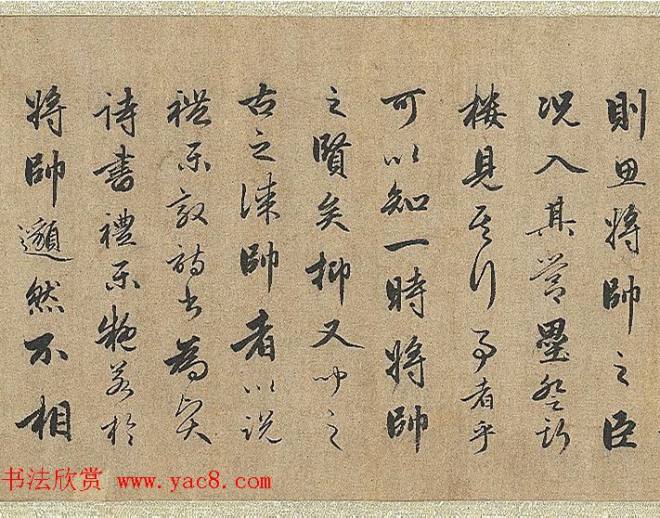 則思將帥之臣
况入其營壘登
樓見其行事者乎
可以知一時將帥
之賢矣抑又聞之
古之謀帥者以説
禮樂敦詩書為賢
詩書禮樂若於
將帥邈然不相
书法欣赏 www.yac8.com